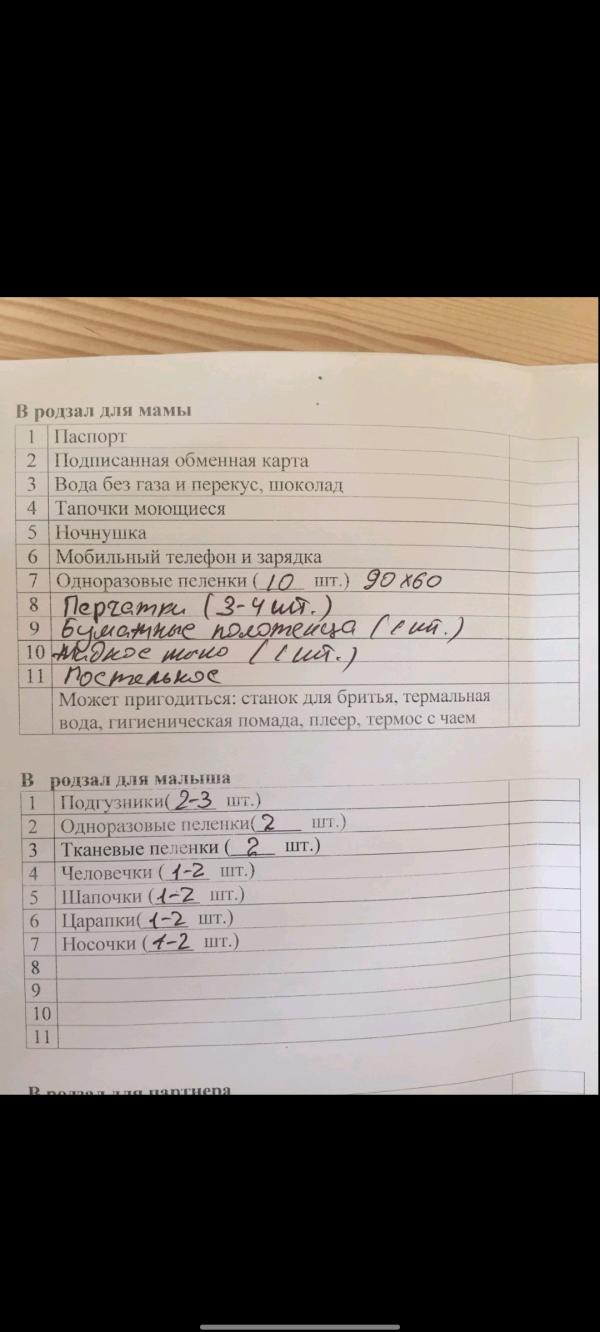 В родзал для мамы
1 Паспорт
2 Подписанная обменная карта
3 Вода без газа и перекус, шоколад
4 Тапочки моющиеся
5 Ночнушка
6 Мобильный телефон и зарядка
7 Одноразовые пеленки ( 10 шт.) 90х60
8 Перчатки (3-4 шт.)
9 Бумажные полотенца (1 шт.)
10 Жидкое мыло (1 шт.)
11 Постельное
Может пригодиться: станок для бритья, термальная
вода, гигиеническая помада, плеер, термос с чаем
В родзал для малыша
1 Подгузники( 2-3 шт.)
2 Одноразовые пеленки( 2 шт.)
3 Тканевые пеленки ( 2 шт.)
4 Человечки ( 1-2 шт.)
5 Шапочки ( 1-2 шт.)
6 Царапки( 1-2 шт.)
7 Носочки ( 1-2 шт.)
8
9
10
11
В родзал для партнера